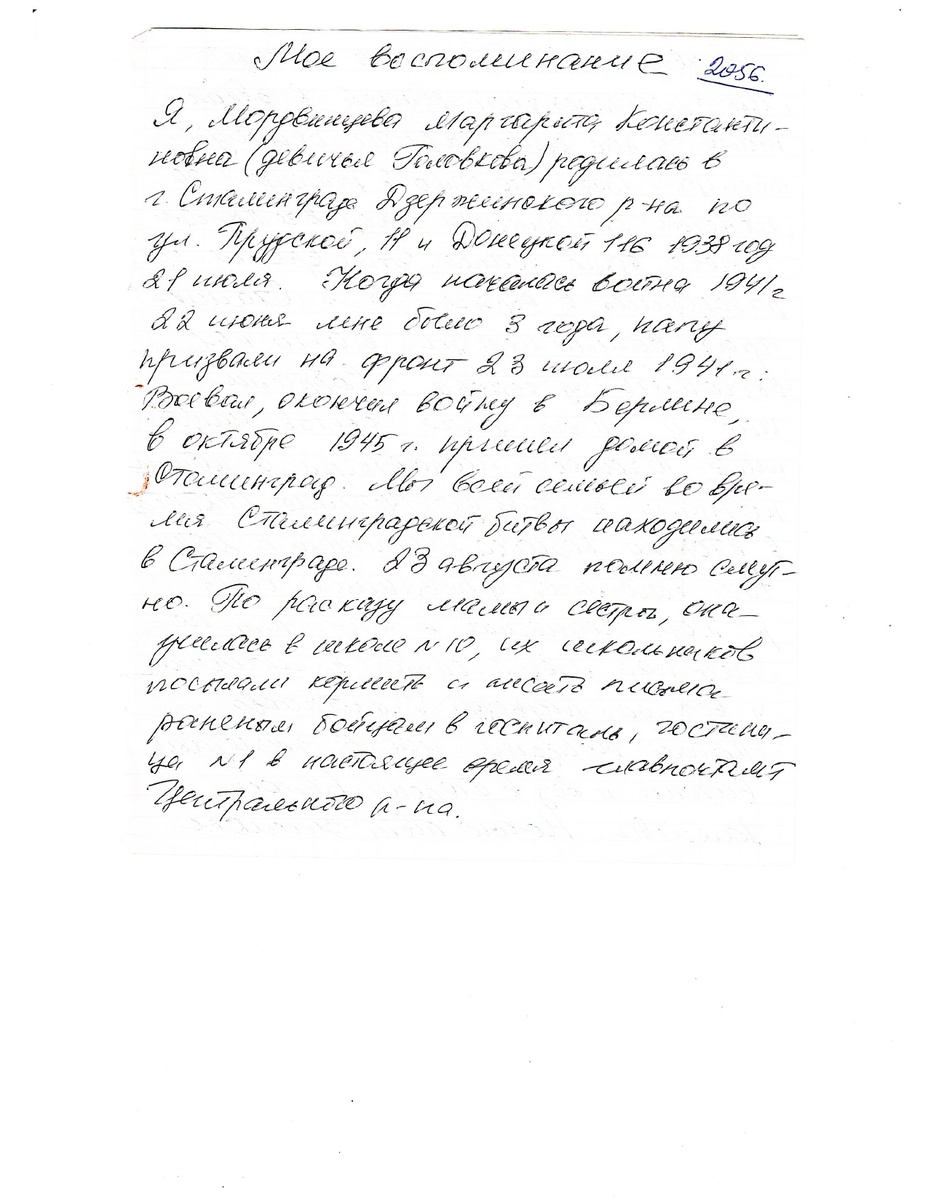 Мое воспоминание 2056.
Я, Мордвинцева Маргарита Константи-
новна (девичья Головкова) родилась в
г. Сталинграде Дзержинского р-на по
ул. Прудской, 11 и Донецкой 116 1938 год
21 июля. Когда началась война 1941 г
22 июня мне было 3 года, папу
призвали на фронт 23 июля 1941 г.
Воевал, окончил войну в Берлине,
в октябре 1945 г. пришел домой в
Сталинград. Мы всей семьей во вре-
мя Сталинградской битвы находились
в Сталинграде. 23 августа помню смут-
но. По расказу мамы и сестры, она
училась в школе №10, их школьников
посылали кормить и писать письма
раненым бойцам в госпиталь, гостини-
ца №1 в настоящее время главпочтамт
Центрального р-на.